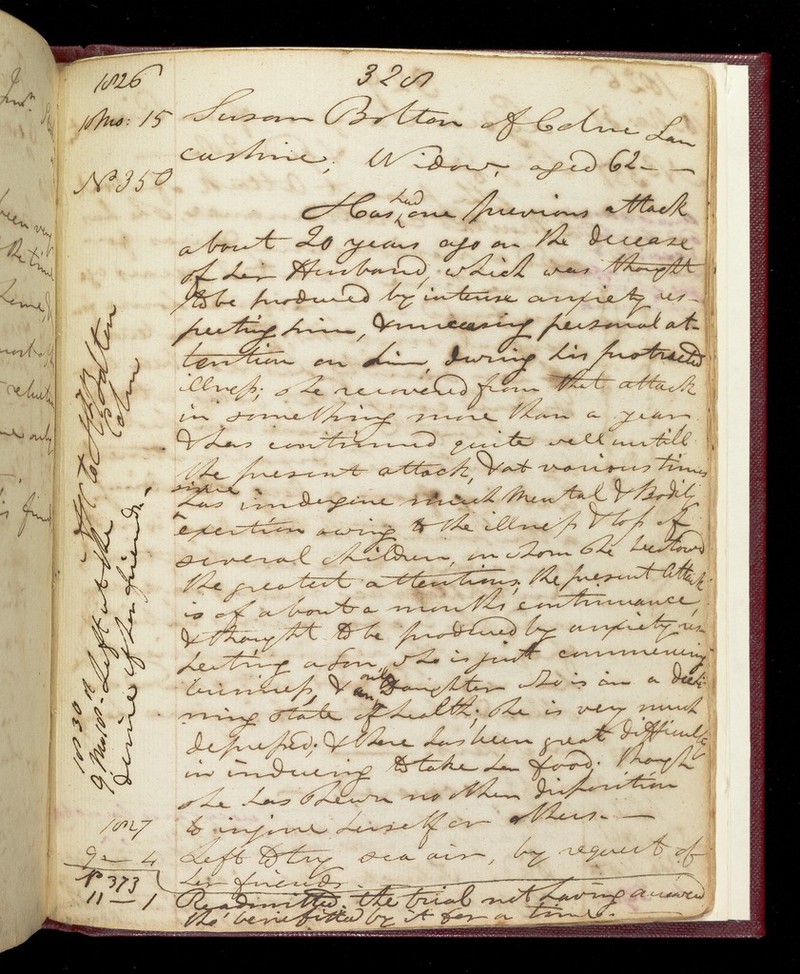 1826
328
10 Mo: 15
Susan Bolton of Colne Lan
cashire; Widow, aged 62 —
No 350
Has had one previous attack
about 20 years ago on the decease
of her Husband, which was thought
to be produced by intense anxiety res-
pecting him, & unceasing personal at-
tention on him, during his protracted
illness; she recovered from that attack
in something more than a year
& has continued quite well untill
the present attack, & at various times
since has undergone much Mental & Bodily
exertion owing to the illness & loss of
several children, on whom she bestowed
the greatest attentions, the present attack
is of about a month's continuance,
& thought to be produced by anxiety res-
pecting a Son, who is just commencing
business, & an only Daughter who is in a decli-
ning state of health; she is very much
depressed; & there has been great difficulty
in inducing to take her food. though
she has shewn no other disposition
to injure herself or others. —
1827
9 — 4
Left to try sea air, by request of
her friends
No 373
11 — 1
Readmitted. the trial not having answered
tho' benefitted by it for a time. —
Bolton
Colne
1830
9 Mo 18 - Left at the
desire of her friends.